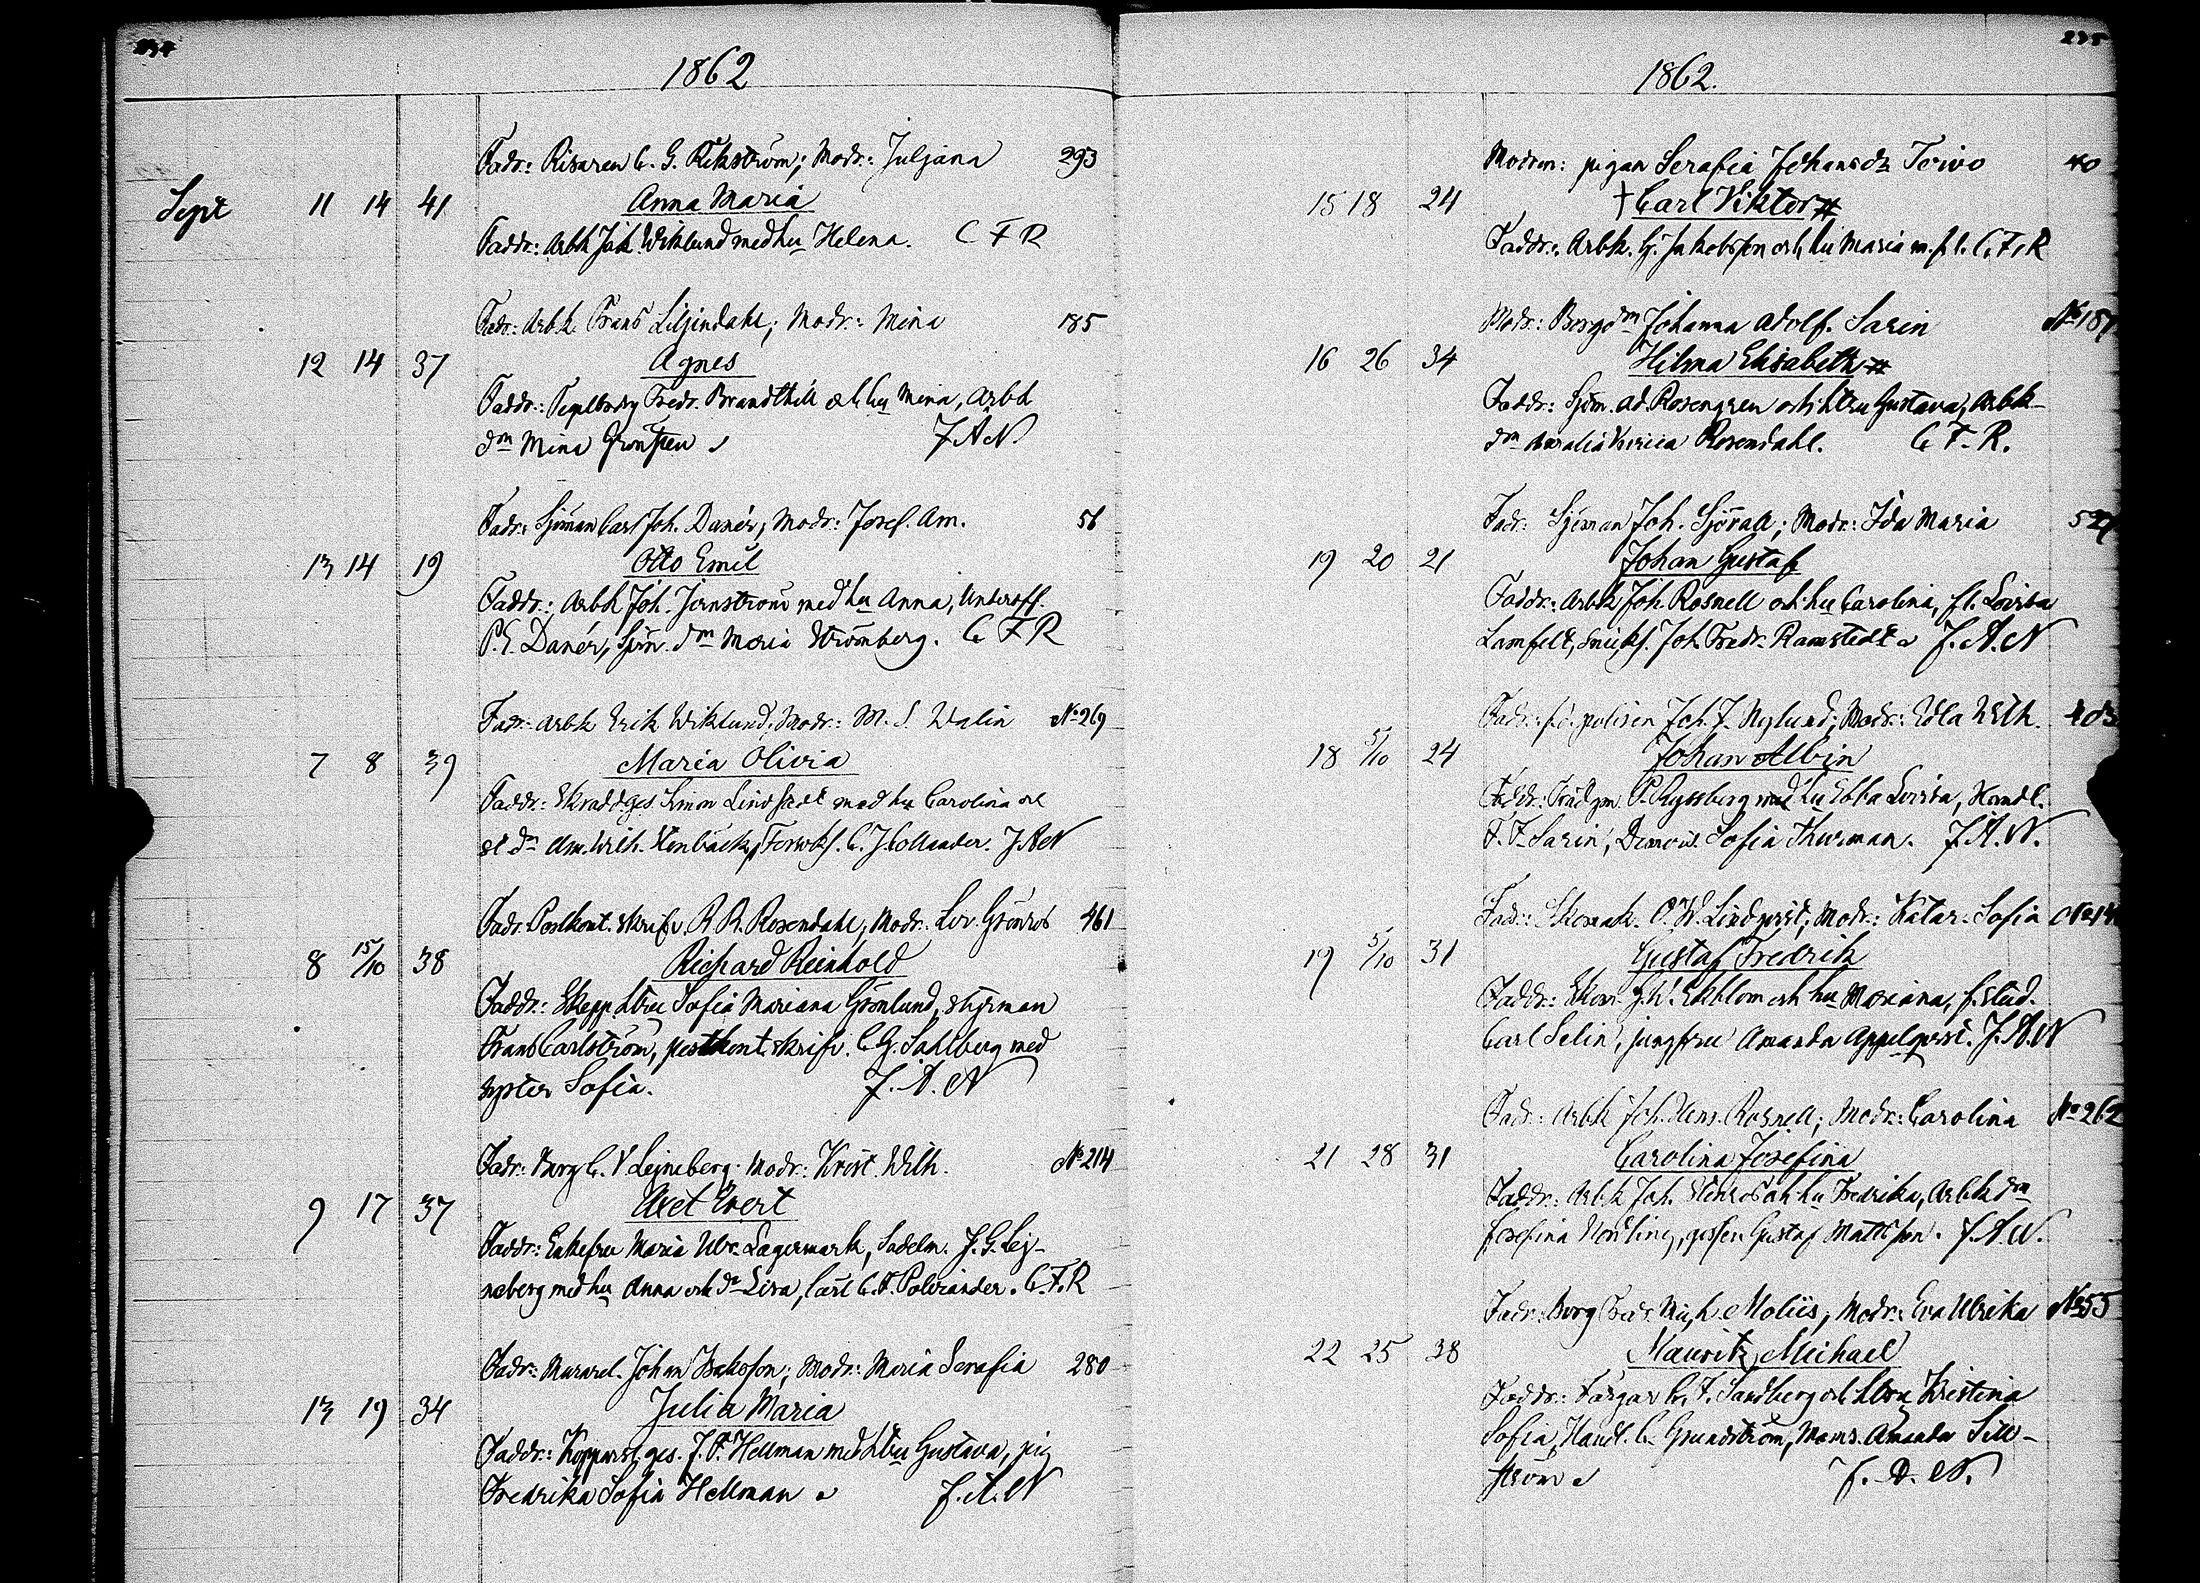 234
1862
Fadr: Risaren C. G. Rikström; Modr: Juljana 293
Sept 11 14 41 Anna Maria
Faddr: Arbk Joh. Wiklund med hu Helena. C F R
Fadr: Arbk Frans Liljendahl; Modr: Mina 185
12 14 37 Agnes
Faddr: Fredr. Brandthill och hu Mina, Arbk
dm Mina Gronsten J A N
Fadr: Sjöman Carl Joh. Danér; Modr: Josef. Am. 56
13 14 19 Otto Emil
Faddr: Arbk Joh. Jernström med hu Anna, Underoff.
P. E. Danér, Sjöm. dm Maria Strömberg. C F R
Fadr: Arbk Erik Wiklund; Modr: M. S. Walin No 269
7 8 39 Maria Olivia
Faddr: Skraddges. Simon Lindstedt med hu Carolina
dn Am. Wilh. Stenbäck, C. J. Collander. J A N
Fadr. Postkont. skrifv. R. R. Rosendahl, Modr: Lov. Grönros 461
8 15/10 38 Richard Reinhold
Faddr: Skepp. Sofia Mariana Grönlund, styrman
Frans Carlström, postkont. skrifv. C. G. Sahlberg med
syster Sofia. J. A. N
Fadr: Borg C. V Lejneberg. Modr: Krist. Wilh. No 214
9 17 37 Axel Evert
Faddr: Enkefru Maria Ulr. Lagermark, Sadelm. J. G. Lej-
neberg med hu Anna och dr Lova, Carl C. F. Polviander. C. F. R
Fadr: Murarel. Johan Isaksson; Modr: Maria Serafia 280
13 19 34 Julia Maria
Faddr: Kopparsl. ges. J. F. Hellman med hu Gustava, pig
Fredrika Sofia Hellman J. A. N
235
1862.
Modren: pigan Serafia Johansdr Toivo 40
15 18 24 † Carl Viktor #
Faddr: Arbk. G. Jakobsson och hu Maria m. fl. C. F. R
Modr: Borgdm Johanna Adolf. Sarin No 187
16 26 34 Hilma Elisabeth #
Faddr: Sjöm. Ad. Rosengren och hustru Gustava, Arbk-
dm Amalia Rosendahl. C F. R.
Fadr: Sjöman Joh. Sjövall; Modr: Ida Maria 527
19 20 21 Johan Gustaf
Faddr: Arbk Joh. Rosnell och hu Carolina, fl. Lovisa
Lamfelt, Joh. Fredr. Ramstedt J. A. N
Fadr: f. d. polisen Joh. J. Nylund; Modr: Edla Wilh. 403
18 5/10 24 Johan Albin
Faddr: P. Ryssberg med hu Ebba Lovisa, Handl.
F. F. Sarin, Demois. Sofia Thurman. J. A. N.
Fadr: Skomak. C. W. Lindqvist; Modr: Katar. Sofia
19 5/10 31 Gustaf Fredrik
Faddr: Skom. G. W. Ekblom och hu Mariana, f. stud.
Carl Selin, jungfru Amanda Appelqvist. J. A. N
Fadr: Arbk Joh. Rosnell; Modr: Carolina No 262
21 28 31 Carolina Josefina
Faddr: Arbk Joh. Stenros och hu Fredrika, Arbk dm
Josefina Nordling, Gustaf Mattsson. J. A. N.
Fadr: Borg Fredr. Mich. Moliis; Modr: Eva Ulrika No 55
22 25 38 Mauritz Michael
Faddr: Färgar C. F. Sandberg och hustru Kristina
Sofia, Handl. C. Grundström, Mams. Amanda Sill-
ström J. A. N.